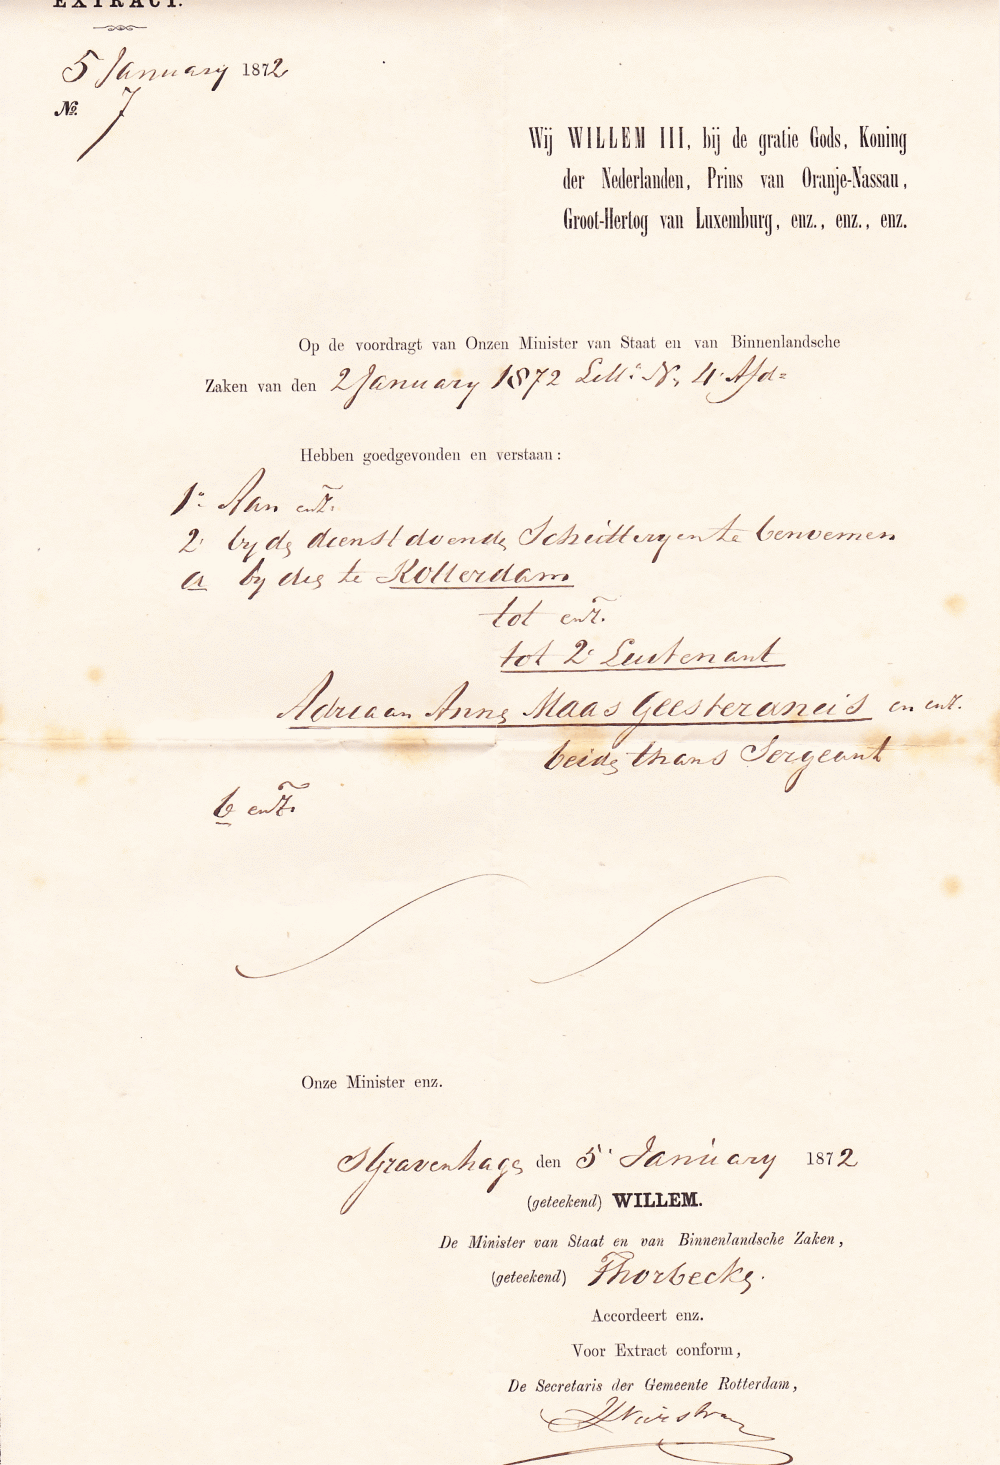 EXTRACT.
5 January 1872
No. 7
Wij WILLEM III, bij de gratie Gods, Koning
der Nederlanden, Prins van Oranje-Nassau,
Groot-Hertog van Luxemburg, enz., enz., enz.
Op de voordragt van Onzen Minister van Staat en van Binnenlandsche
Zaken van den 2 January 1872 Litt: N, 4e Afd=
Hebben goedgevonden en verstaan:
1o. Aan enz.
2 by de dienstdoende Schutteryen te benoemen
a by die te Rotterdam
tot enz.
tot 2e Luitenant
Adriaan Anne Maas Geesteranus en enz.
beide thans Sergeant
b enz.
Onze Minister enz.
sGravenhage den 5 January 1872
(geteekend) WILLEM.
De Minister van Staat en van Binnenlandsche Zaken,
(geteekend) Thorbecke.
Accordeert enz.
Voor Extract conform,
De Secretaris der Gemeente Rotterdam,